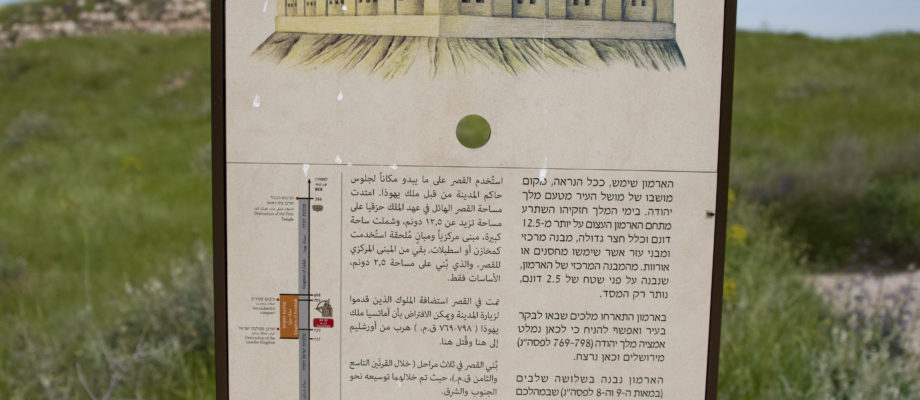 הארמון שימש, ככל הנראה, מקום
מושבו של מושל העיר מטעם מלך
יהודה. בימי המלך חזקיהו השתרע
מתחם הארמון העצום על יותר מ-12.5
דונם וכלל חצר גדולה, מבנה מרכזי
ומבני עזר אשר שימשו מחסנים או
אורוות. מהמבנה המרכזי של הארמון,
שנבנה על פני שטח של 2.5 דונם,
נותר רק המסד.
בארמון התארחו מלכים שבאו לבקר
בעיר ואפשר להניח כי לכאן נמלט
אמציה מלך יהודה (798-769 לפסה"נ)
מירושלים וכאן נרצח.
הארמון נבנה בשלושה שלבים
(במאות ה-9 וה-8 לפסה"נ) שבמהלכם
استُخدم القصر على ما يبدو مكاناً لجلوس
حاكم المدينة من قبل ملك يهوذا. امتدت
مساحة القصر الهائل في عهد الملك حزقيا على
مساحة تزيد عن ١٢,٥ دونم، وشملت ساحة
كبيرة، مبنى مركزياً ومبانٍ مُلحقة استُخدمت
كمخازن أو اسطبلات. بقي من المبنى المركزي
للقصر، والذي بُني على مساحة ٢,٥ دونم،
الأساسات فقط.
تمت في القصر استضافة الملوك الذين قدموا
لزيارة المدينة ويمكن الافتراض بأن أماتسيا ملك
يهوذا ( ٧٩٨-٧٦٩ ق.م. ) هرب من أورشليم
إلى هنا وقُتل هنا.
بُني القصر في ثلاث مراحل ( خلال القرنَين التاسع
والثامن ق.م.)، حيث تم خلالهما توسيعه نحو
الجنوب والشرق.
BCE
586
Destruction of the First
Temple
701
Sennacherib's
conquest
Destruction of the
Israelite Kingdom